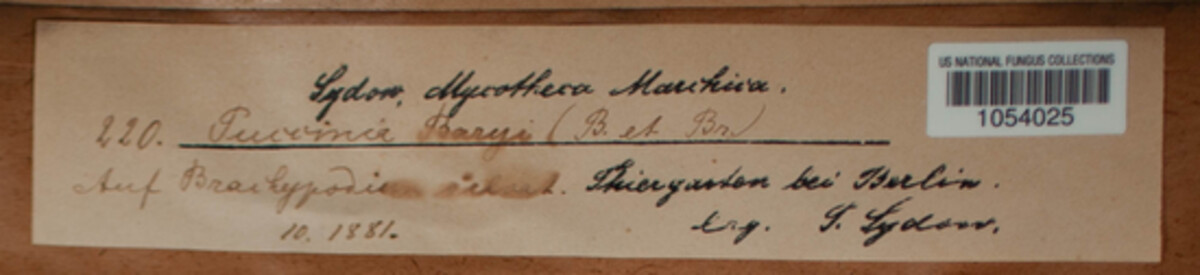 Sydow, Mycotheca Marchica.
US NATIONAL FUNGUS COLLECTIONS
1054025
220. Puccinia Baryi (B. et Br.)
Auf Brachypodium silvat. Thiergarten bei Berlin.
10. 1881. leg. P. Sydow.